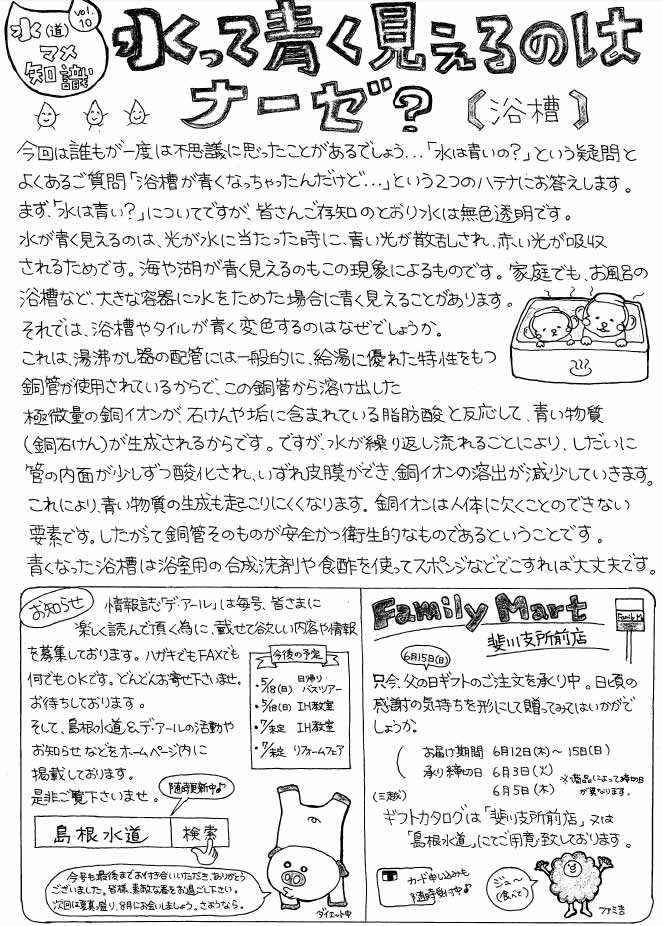 水(道)
マメ
知識
vol.10
水って青く見えるのは
ナーゼ?
【浴槽】
今回は誰もが一度は不思議に思ったことがあるでしょう…「水は青いの?」という疑問と
よくあるご質問「浴槽が青くなっちゃったんだけど…」という2つのハテナにお答えします。
まず、「水は青い?」についてですが、皆さんご存知のとおり水は無色透明です。
水が青く見えるのは、光が水に当たった時に、青い光が散乱され、赤い光が吸収
されるためです。海や湖が青く見えるのもこの現象によるものです。家庭でも、お風呂の
浴槽など、大きな容器に水をためた場合に青く見えることがあります。
それでは、浴槽やタイルが青く変色するのはなぜでしょうか。
これは、湯沸かし器の配管には一般的に、給湯に優れた特性をもつ
銅管が使用されているからで、この銅管から溶け出した
極微量の銅イオンが、石けんや垢に含まれている脂肪酸と反応して、青い物質
(銅石けん)が生成されるからです。ですが、水が繰り返し流れることにより、しだいに
管の内面が少しずつ酸化され、いずれ皮膜ができ、銅イオンの溶出が減少していきます。
これにより、青い物質の生成も起こりにくくなります。銅イオンは人体に欠くことのできない
要素です。したがって銅管そのものが安全かつ衛生的なものであるということです。
青くなった浴槽は浴室用の合成洗剤や食酢を使ってスポンジなどでこすれば大丈夫です。
お知らせ
情報誌「デ・アール」は毎号、皆さまに
楽しく読んで頂く為に、載せて欲しい内容や情報
を募集しております。ハガキでもFAXでも
何でもOKです。どんどんお寄せ下さいませ。
お待ちしております。
そして、島根水道&デ・アールの活動や
お知らせなどをホームページ内に
掲載しております。
是非ご覧下さいませ。
随時更新中♪
島根水道 検索
今後の予定
・5/18(日) 日帰りバスツアー
・5/18(日) IH教室
・7/未定 IH教室
・7/未定 リフォームフェア
今号も最後までお付き合いいただき、ありがとう
ございました。皆様、素敵な春をお過ごし下さい。
次回は夏真っ盛り、8月にお会いしましょう。さようなら。
ダイエット中
Family Mart
斐川支所前店
Family M
6月15日(日)
只今、父の日ギフトのご注文を承り中。日頃の
感謝の気持ちを形にして贈ってみてはいかがで
しょうか。
お届け期間 6月12日(木)～15日(日)
承り締切日 6月3日(火)
(三越) 6月5日(木)
※商品によって締切日
が異なります。
ギフトカタログは「斐川支所前店」又は
「島根水道」にてご用意致しております。
カード申し込みも
随時受付中♪
ジュ～
(食べて)
ファミ吉